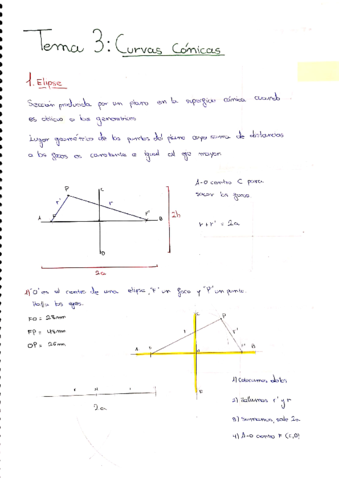 Tema 3: Curvas Cónicas
1. Elipse
Sección producida por un plano en la superficie cónica cuando
es oblicuo a las generatrices
Lugar geométrico de los puntos del plano cuya suma de distancias
a los focos es constante e igual al eje mayor
A-O centro C para
sacar los focos
P
C
r'
r
r + r' = 2a
A
F
F'
B
2b
D
2a
"O" es el centro de una elipse, "F" un foco y "P" un punto.
Halla los ejes.
FO = 28mm
FP = 48mm
OP = 26mm
P
r
r'
A
B
2a
1) Colocamos datos
2) Hallamos r' y r
3) Sumamos, sale 2a
4) A-O centro F (C,D)